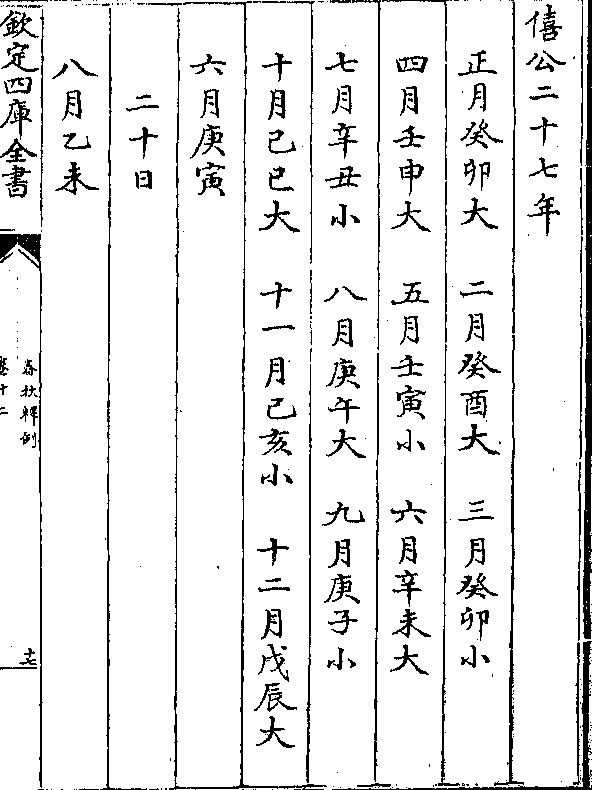 僖公二十七年
正月癸卯大 二月癸酉大 三月癸卯小
四月壬申大 五月壬寅小 六月辛未大
七月辛丑小 八月庚午大 九月庚子小
十月己巳大 十一月己亥小 十二月戊辰大
六月庚寅
二十日
八月乙未
欽定四庫全書
春秋釋例
卷十二
十七